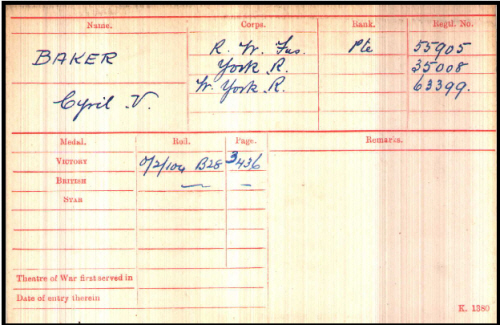 Name. Corps. Rank. Regtl. No.
BAKER R. W. Fus. Pte 55905
York R. 35008
Cyril V. W. York R. 63399.
Medal. Roll. Page. Remarks.
VICTORY O/2/104 B28 3436
BRITISH — —
STAR
Theatre of War first served in
Date of entry therein
K. 1380